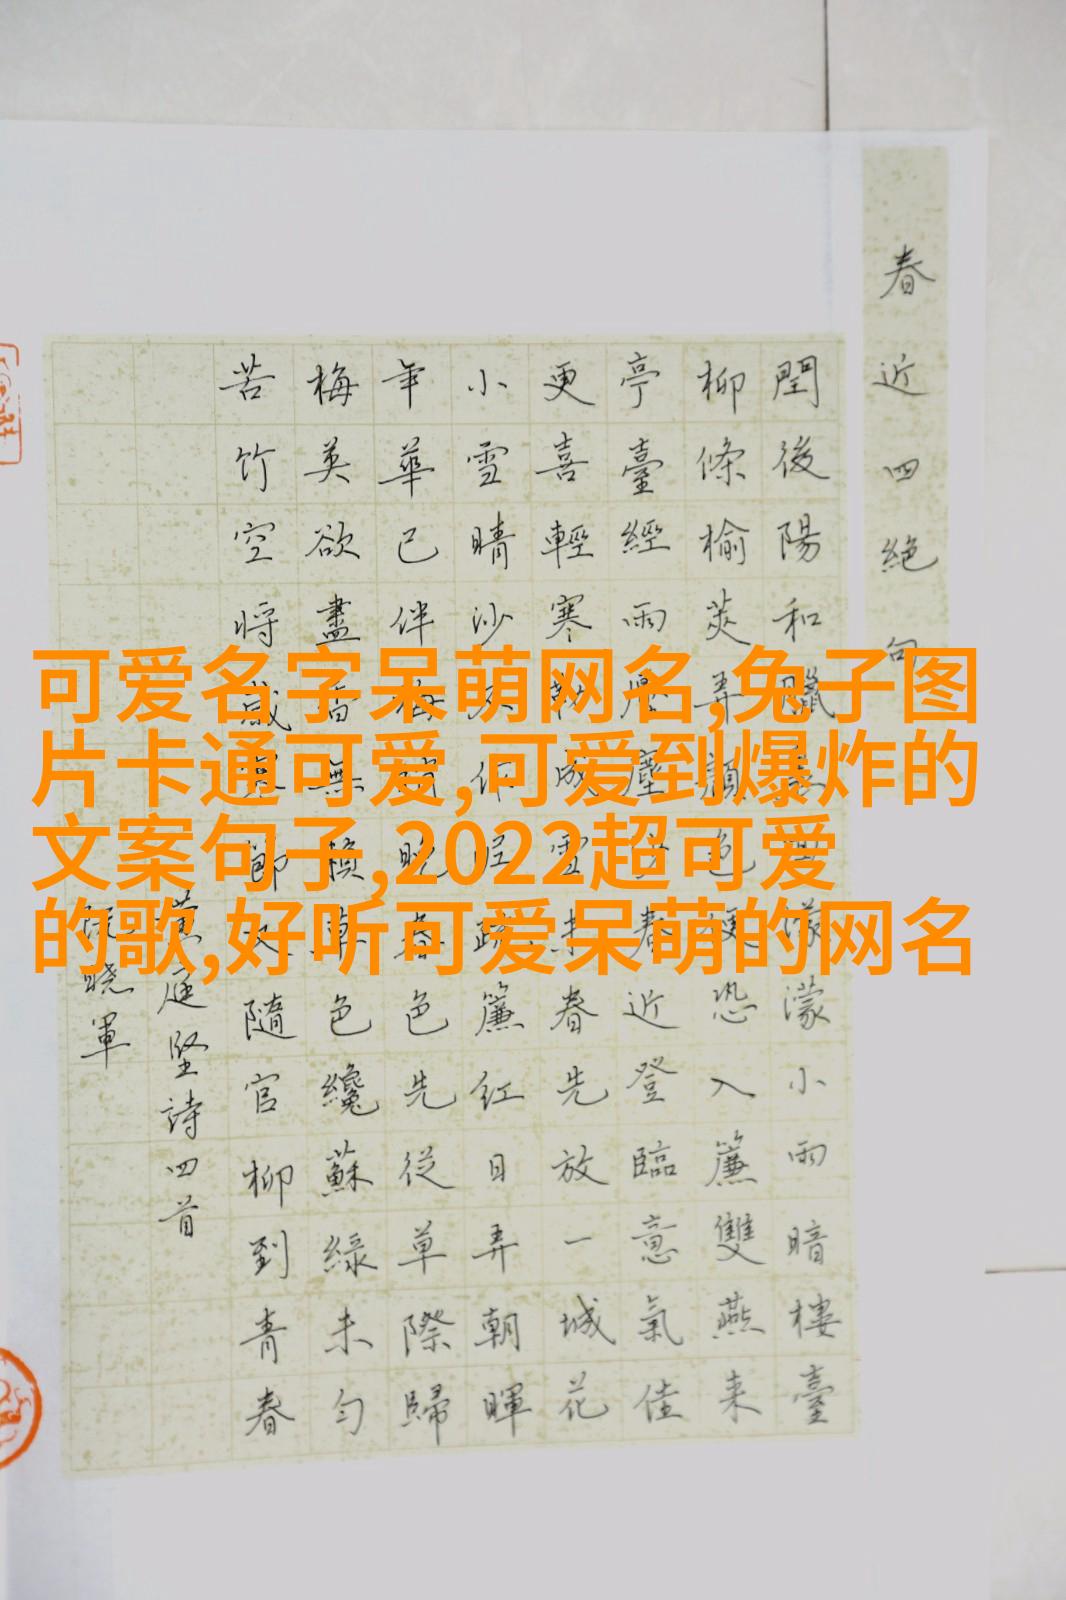 可爱名字呆萌网名,兔子图
片卡通可爱,可爱到爆炸的
文案句子,2022超可爱
的歌,好听可爱呆萌的网名
春近四絕句
閏後陽和臘濛濛小雨暗樓臺
柳條榆莢弄顏色便恐入簾雙燕來
亭臺經雨壓塵春近登臨意氣佳
更喜輕寒勒成雪未春先放一城花
小雪晴沙不作疏簾紅日弄朝暉
年華已伴梅梢晚春色先從草際歸
梅英欲盡香無草色纔蘇綠未勻
苦竹空將歲寒節又隨官柳到青春
黃庭堅詩四首
曉軍